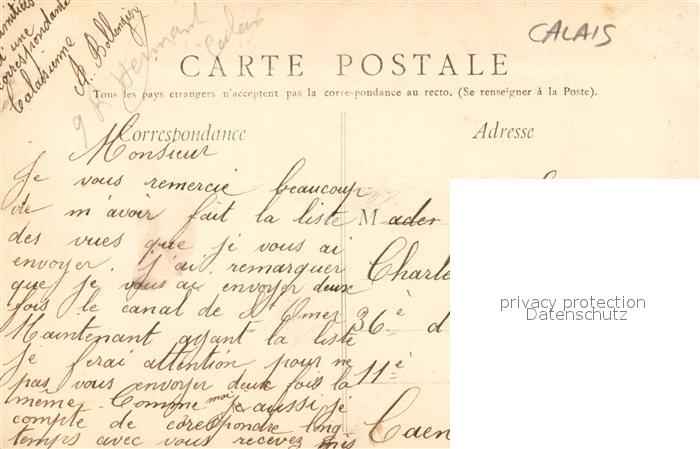 amitiés
d'une
correspondante
Calaisienne
CALAIS
CARTE POSTALE
Tous les pays etrangers n'acceptent pas la correspondance au recto. (Se renseigner à la Poste).
Correspondance
Adresse
Monsieur
Je vous remercie beaucoup
de m'avoir fait la liste
des vues que je vous ai
envoyer. J'ai remarquer
que je vous ai envoyer deux
fois le canal de St Omer
Maintenant ayant la liste
je ferai attention pour ne
pas vous envoyer deux fois la
même. Comme moi je aussi je
compte de corespondre long
temps avec vous recevez mes
M
Charle
36è d
11è
Caen
privacy protection
Datenschutz